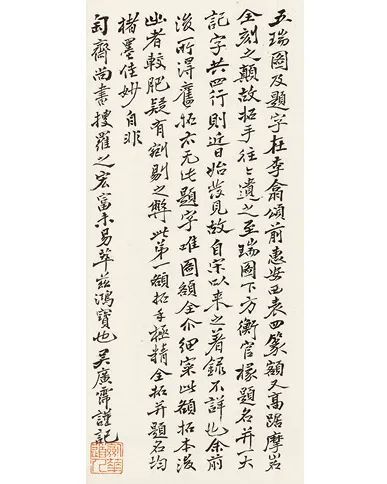 五瑞圖及題字在李翕頌前惠安西表四篆額又高踞摩岩
全刻之顛故拓手往々遺之至瑞圖下方衡官掾題名并一大
記字共四行則近日始發見故自宋以來之著錄不詳也余前
後所得舊拓亦无此題字唯圖額全介細案此額拓本後
出者較肥疑有剜剔之弊此第一額拓手極精全拓并題名均
楮墨佳妙自非
匋齊尚書搜羅之宏富未易萃茲鴻寶也吳廣霈謹記